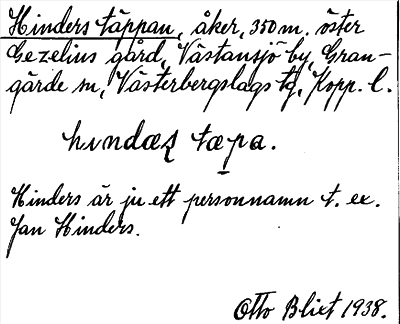 Hinders täppan, åker, 350 m. öster
Gezelius gård, Västansjö by, Gran-
gärde sn, Västerbergslags tg, Kopp. l.
hındæʒ tæpa.
Hinders är ju ett personnamn t. ex.
Jan Hinders.
Otto Blixt 1938.